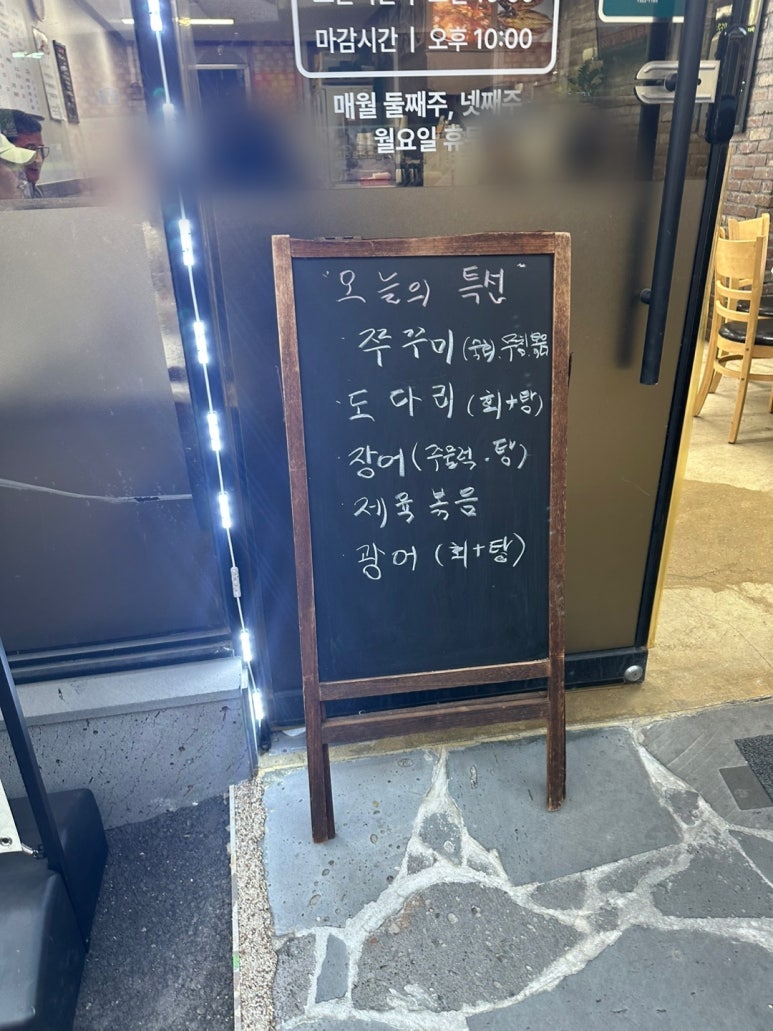 마감시간 | 오후 10:00
매월 둘째주, 넷째주
월요일 휴무
"오늘의 특선"
쭈꾸미 (숙회.무침.볶음
· 도다리 (회+탕)
· 장어 (주물럭.탕)
· 제육볶음
· 광어 (회+탕)